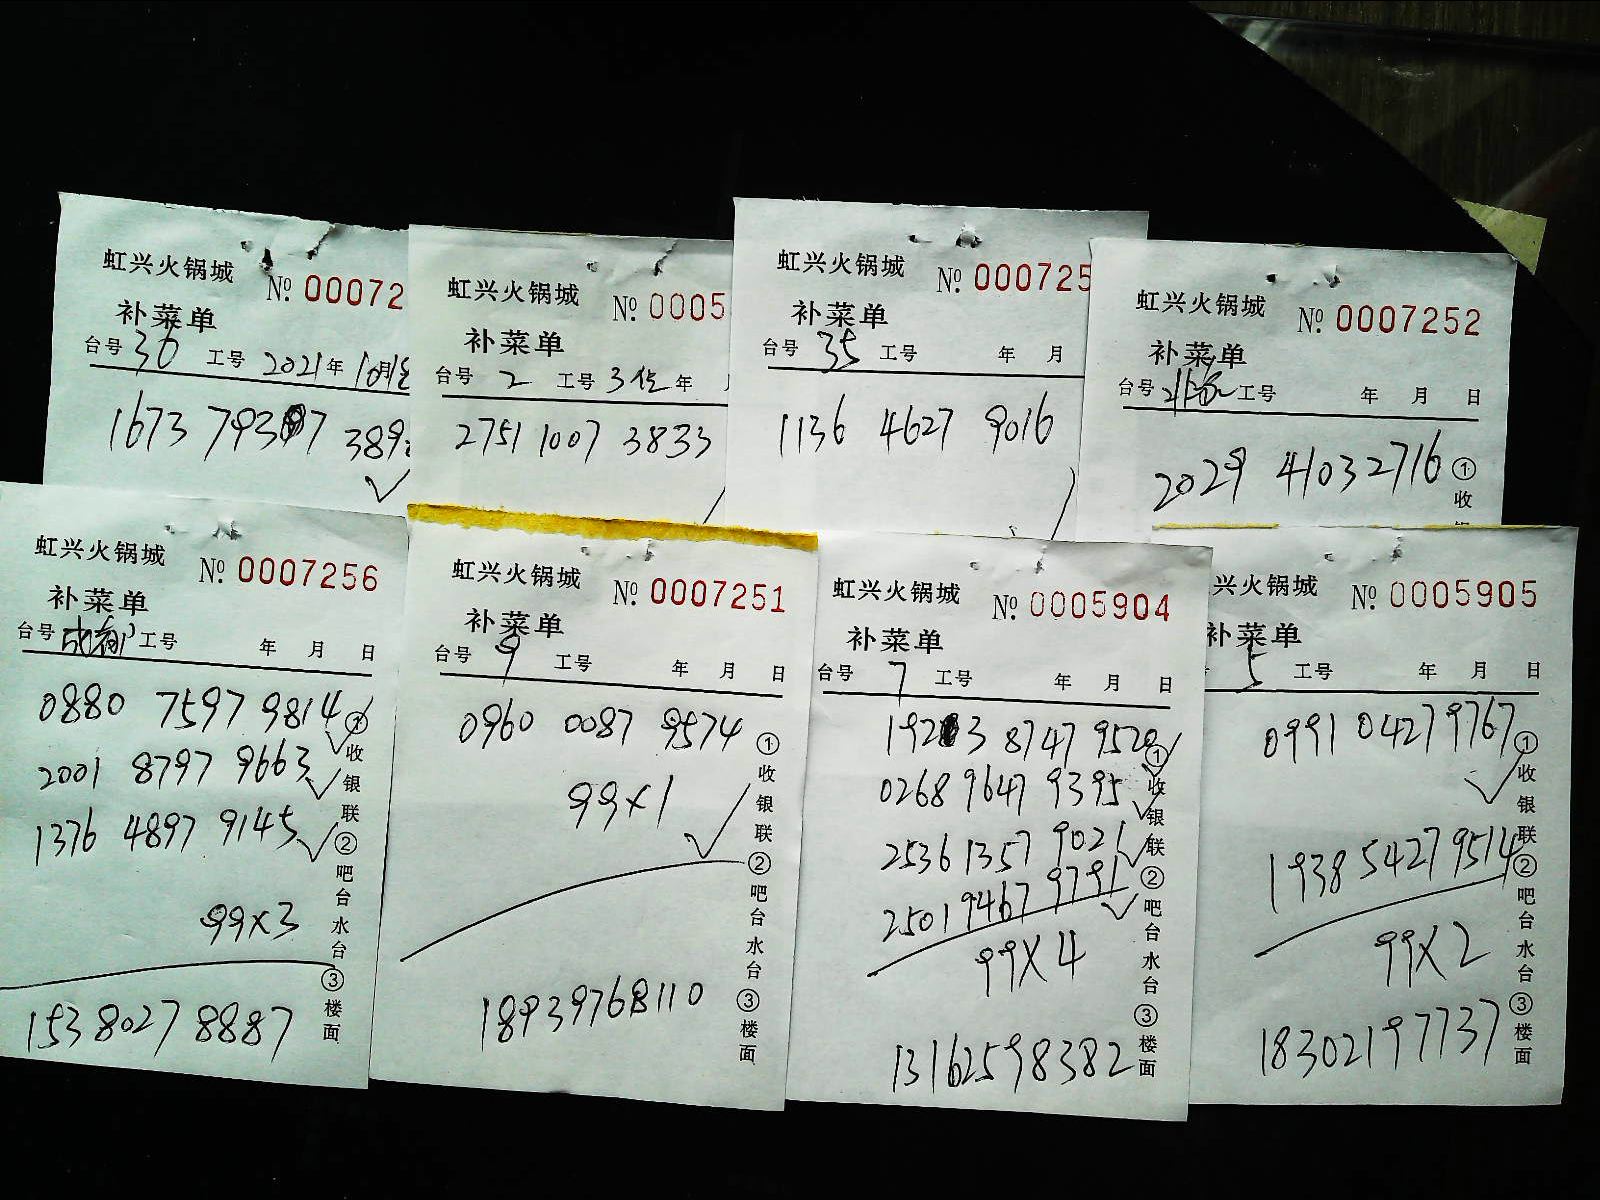 虹兴火锅城 № 00072
补菜单
台号 36 工号 2021年10月
1673 7937 389
虹兴火锅城 № 0005
补菜单
台号 2 工号 3 年
2751 1007 3833
虹兴火锅城 № 000725
补菜单
台号 35 工号 年 月
1136 4627 9016
虹兴火锅城 № 0007252
补菜单
台号 工号 年 月 日
2029 41032716
①收
虹兴火锅城 № 0007256
补菜单
台号 成都 工号 年 月 日
0880 7597 9814
2001 8797 9663
1376 4897 9145
99x3
15380278887
①收银联②吧台水台③楼面
虹兴火锅城 № 0007251
补菜单
台号 9 工号 年 月 日
0960 0087 9574
99x1
18939768110
①收银联②吧台水台③楼面
虹兴火锅城 № 0005904
补菜单
台号 7 工号 年 月 日
1923 8747 9520
0268 9647 9395
2536 1357 9021
2501 9467 9791
99x4
13162598382
①收银联②吧台水台③楼面
兴火锅城 № 0005905
补菜单
5 工号 年 月 日
0991 0427 9767
1938 5427 9514
99x2
18302197737
①收银联②吧台水台③楼面